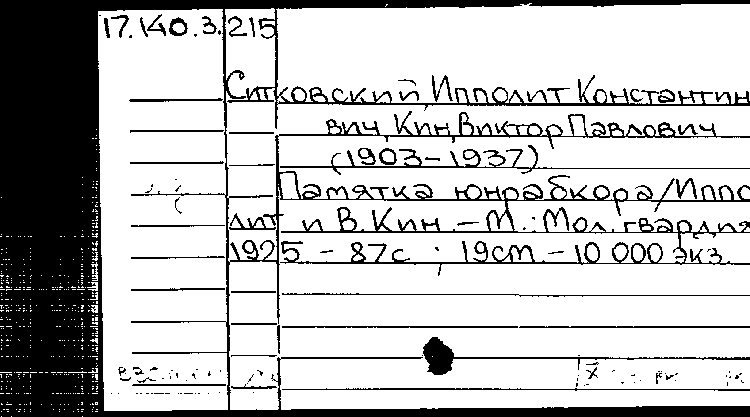 17.140.3.215
Ситковский, Ипполит Константин
вич, Кин, Виктор Павлович
(1903-1937)
Памятка юнрабкора/Иппо
лит и В. Кин. - М.: Мол. гвардия
1925 - 87с ; 19см. - 10 000 экз.